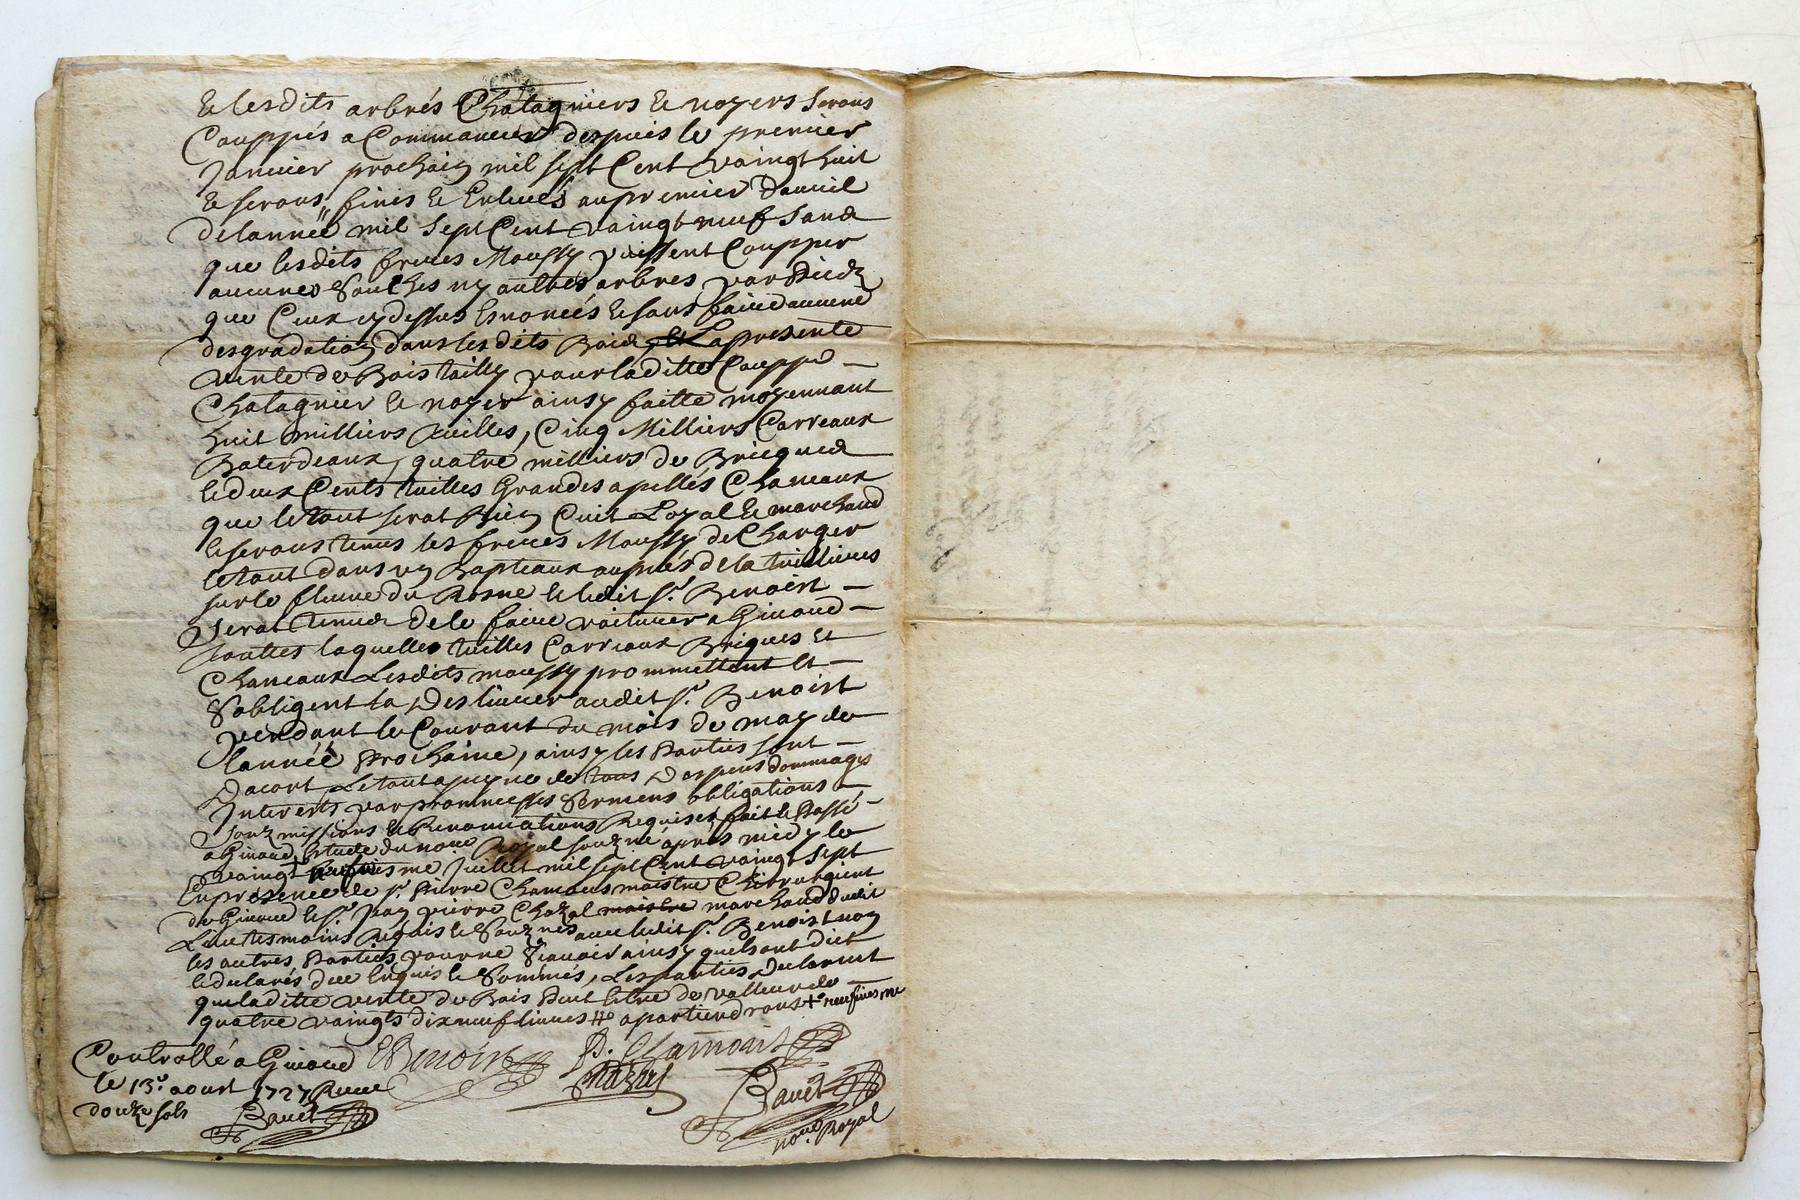 Et lesdits arbrés Chatagniers et noyers serons
Couppés a Commancer despuis le premier
Janvier prochain mil sept Cent vaingt huit
Et serons finis et Enlevés au premier Davril
de lannéé mil sept Cent vaingt neuf sans
que lesdits freres Moussy puissent Coupper
aucunes Souches ny autres arbres par pieds
que Ceux cy dessus Enoncés et sans faire daucune
desgradation dans lesdits Bois Et La presente
vente de Bois tailly pour laditte Couppe
Chatagnier et noyer ainsy faitte moyennant
huit milliers tuilles, Cinq Milliers Carreaux
quatre milliers de Bricques
et deux Cents tuilles Grandes apellés Chaneaux
que le tout serat Bien Cuit Loyal et marchand
et serons tenus les freres Moussy de Charger
le tout dans un Bapteaux auprés de la tuillieres
sur le fleuve du Rosne et ledit sr. Benoist
serat tenus de le faire voiturer a Girond
touttes laquelles tuilles Carreaux Briques et
Chaneaux Lesdits moussy prommettent et
S'obligent la Deslivrer audit sr. Benoist
pendant le Courant du mois de may de
lannéé prochaine, ainsy les parties sont
Dacort Le tout a peyne de tous Despens dommages
Interests par prommesses Sermens obligations
souzmissions et Renonciations Requises fait et Passé
Estude du notre Royal souzné aprés midy le
vaingt + Juillet mil sept Cent vaingt sept
En presence de sr. pierre maistre Chirrurgient
de et sr. Jean pierre Chazal maistre marchand dudit
Lieu tesmoins Requis et Souznés avec ledit sr. Benoist non
les autres parties pour ne Scavoir ainsy quels ont dict
et declarés de ce Enquis et Sommés, Les parties Declarent
que laditte vente de Bois peut Estre de valleur de
quatre vaingts dix neuf livres apartiendrons + neufviesme
Controllé a
le 13e. aoust 1727 Receu
douze sols
EBenoist
P. Chamous
Chazal
Bauet
Bauet
notre Royal